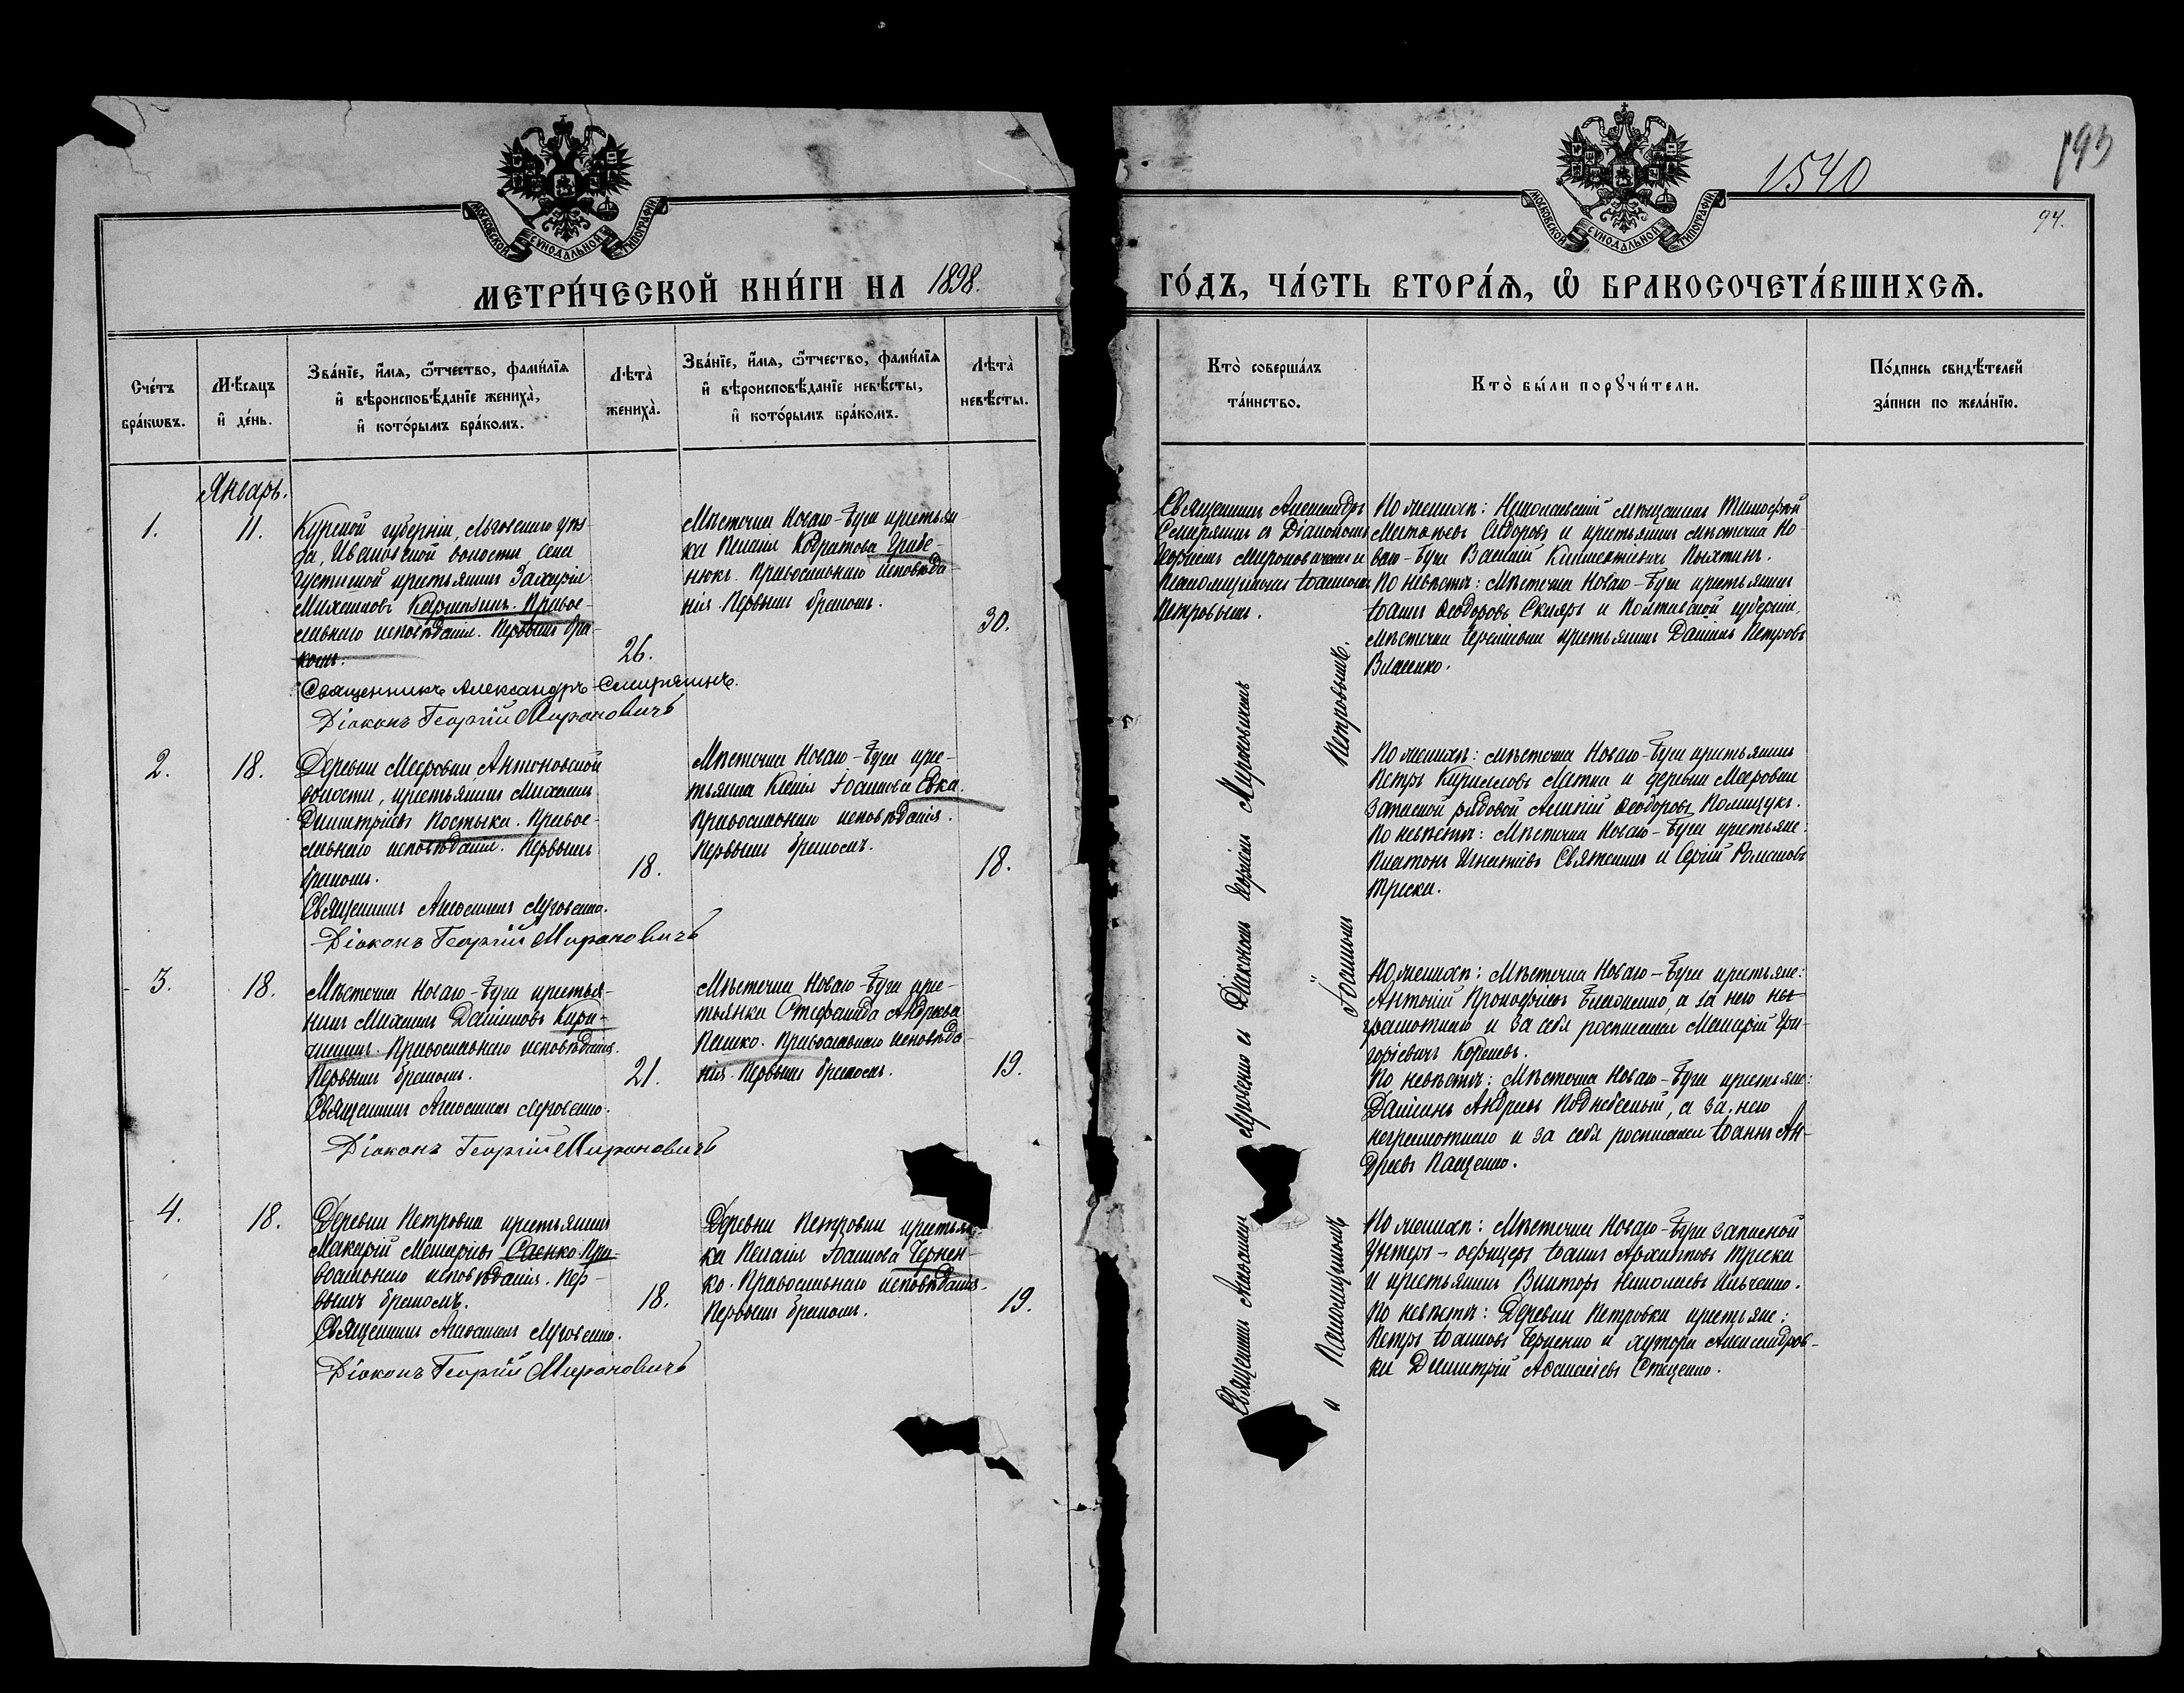 1540
193
94.
МОСКОВСКОЙ СУНОДАЛЬНОЙ ТИПОГРАФІИ
МОСКОВСКОЙ СУНОДАЛЬНОЙ ТИПОГРАФІИ
МЕТРИ́ЧЕСКОЙ КНИ́ГИ НА 1898.
ГО́ДЪ, ЧА́СТЬ ВТОРА́Ѧ, Ѽ БРАКОСОЧЕТА́ВШИХСѦ.
Сче́тъ бра́кѡвъ.
Мѣ́сяцъ и҆ де́нь.
Зва́нїе, и҆́мѧ, ѻ҆́тчество, фами́лїѧ
и҆ вѣроисповѣ́данїе жениха̀,
и҆ кото́рымъ бра́комъ.
Лѣта̀ жениха̀.
Зва́нїе, и҆́мѧ, ѻ҆́тчество, фами́лїѧ
и҆ вѣроисповѣ́данїе невѣ́сты,
и҆ кото́рымъ бра́комъ.
Лѣта̀ невѣ́сты.
Кто̀ соверша́лъ
та́инство.
Кто̀ бы́ли порꙋчи́тели.
По́дпись свидѣ́телей
за́писи по жела́нїю.
Январь.
1.
11.
Курской губерніи, Льговскаго уѣз-
да, Ивановской волости, села
Густыной крестьянинъ Захарія
Михаиловъ Православ-
славнаго исповѣданія. Первымъ бра-
комъ.
26.
Священникъ Александръ Смирягинъ.
Діаконъ Георгій Мироновичъ
Мѣстечка Новаго-Буга крестьян-
ка Пелагія Кодратова Грабе-
нюкъ. Православнаго исповѣда-
нія. Первымъ бракомъ.
30.
Священникъ Александръ
Смирягинъ съ Діакономъ
Георгіемъ Мироновичемъ и
Псаломщикомъ Іоанномъ
Петровымъ.
По женихѣ: Николаевскій мѣщанинъ Тимофей
Сидоровъ и крестьянинъ мѣстечка Но-
ваго-Буга Василій
По невѣстѣ: Мѣстечка Новаго-Буга крестьянинъ
Іоаннъ Ѳеодоровъ Скляръ и Полтавской губерніи,
мѣстечка крестьянинъ Даніилъ Петровъ
Власенко.
2.
18.
Деревни Мееровки, Антоновской
волости, крестьянинъ Михаилъ
Димитріевъ Костыка. Право-
славнаго исповѣданія. Первымъ
бракомъ.
18.
Священникъ Аѳанасій Луговенко.
Діаконъ Георгій Мироновичъ
Мѣстечка Новаго-Буга крес-
тьянка Ксенія Іоаннова Ейка.
Православнаго исповѣданія.
Первымъ бракомъ.
18.
По женихѣ: мѣстечка Новаго-Буга крестьянинъ
Петръ Кирилловъ Латка и деревни Мееровки
запасной рядовой Ѳеодоровъ Полищукъ.
По невѣстѣ: Мѣстечка Новаго-Буга крестьяне:
Платонъ Игнатіевъ и Сергій Романовъ
Триска.
3.
18.
Мѣстечка Новаго-Буга крестья-
нинъ Михаилъ Даніиловъ
Православнаго исповѣданія.
Первымъ бракомъ.
21.
Священникъ Аѳанасій Луговенко.
Діаконъ Георгій Мироновичъ
Мѣстечка Новаго-Буга крес-
тьянка Стефанида Андреева
Пашко. Православнаго исповѣда-
нія. Первымъ бракомъ.
19.
По женихѣ: Мѣстечка Новаго-Буга крестьяне:
Антоній Прокофіевъ а за него не-
грамотнаго и за себя росписался Макарій Гри-
горіевичъ Кореневъ.
По невѣстѣ: Мѣстечка Новаго-Буга крестьяне:
Даміанъ Андреевъ Поднебесный, а за него
неграмотнаго и за себя росписался Іоаннъ Ан-
дреевъ Пащенко.
4.
18.
Деревни Петровки крестьянинъ
Макарій Саенко. Пра-
вославнаго исповѣданія. Пер-
вымъ бракомъ.
18.
Священникъ Аѳанасій Луговенко.
Діаконъ Георгій Мироновичъ
Деревни Петровки крестьян-
ка Пелагія Іоаннова Чернен-
ко. Православнаго исповѣданія.
Первымъ бракомъ.
19.
По женихѣ: Мѣстечка Новаго-Буга запасной
унтеръ-офицеръ Іоаннъ Архиповъ Триска
и крестьянинъ Викторъ Николаевъ Ильченко.
По невѣстѣ: Деревни Петровки крестьяне:
Петръ Іоанновъ Черненко и хутора Александров-
ки Димитрій Аѳанасіевъ Стаценко.
Священникъ Аѳанасій Луговенко съ Діакономъ Георгіемъ Мироновичемъ
и Псаломщикомъ Іоанномъ Петровымъ.